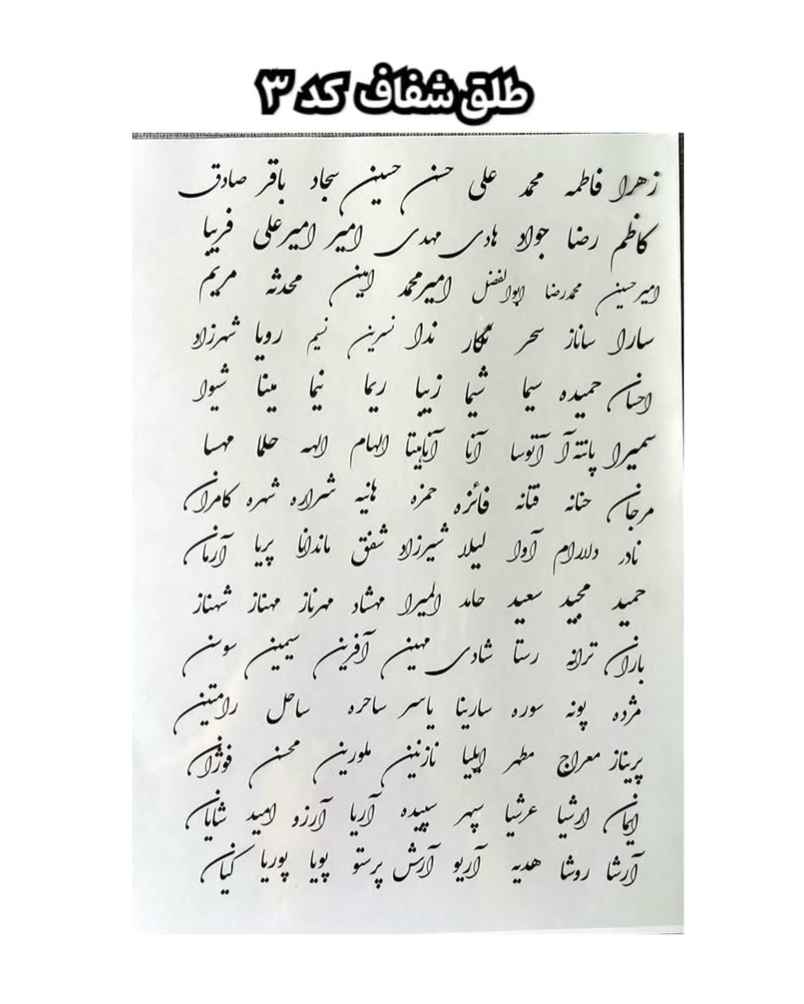 طلق شفاف کد ۳
زهرا فاطمه محمد علی حسن حسین سجاد باقر صادق
کاظم رضا جواد هادی مهدی امیر امیرعلی فریبا
امیرحسین محمدرضا ابوالفضل امیرمحمد امین محدثه مریم
سارا ساناز سحر نگار ندا نسرین نسیم رویا شهرزاد
احسان حمیده سیما شیما زیبا ریما نیما مینا شیوا
سمیرا پانته‌آ آتوسا آنا آناهیتا الهام الهه حلما مهسا
مرجان حنانه فتانه فائزه حمزه هانیه شراره شهره کامران
نادر دلارام آوا لیلا شیرزاد شفق ماندانا پریا آرمان
حمید مجید سعید حامد المیرا مهشاد مهرناز مهناز شهناز
باران ترانه رستا شادی مهین آفرین سیمین سوسن
مژده پونه سوره سارینا یاسر ساحره ساحل رامتین
پریناز معراج مطهر ایلیا نازنین ملورین محسن فوژان
ایمان ارشیا عرشیا سپهر سپیده آریا آرزو امید شایان
آرشا روشا هدیه آریو آرش پرستو پویا پوریا کیان